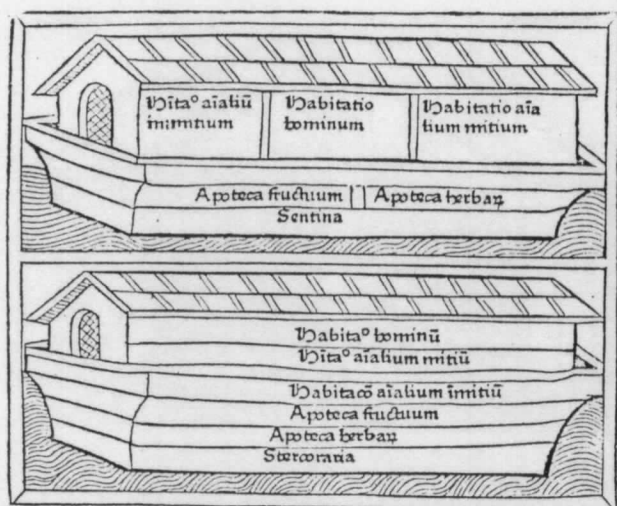 Hĩtaº aĩaliũ
inmitium
Habitatio
hominum
Habitatio aĩa
lium mitium
Apoteca fructuum
Apoteca herbaꝝ
Sentina
Habitaº hominũ
Hĩtaº aĩalium mitiũ
Habitacõ aĩalium ĩmitiũ
Apoteca fructuum
Apoteca herbaꝝ
Stercoraria